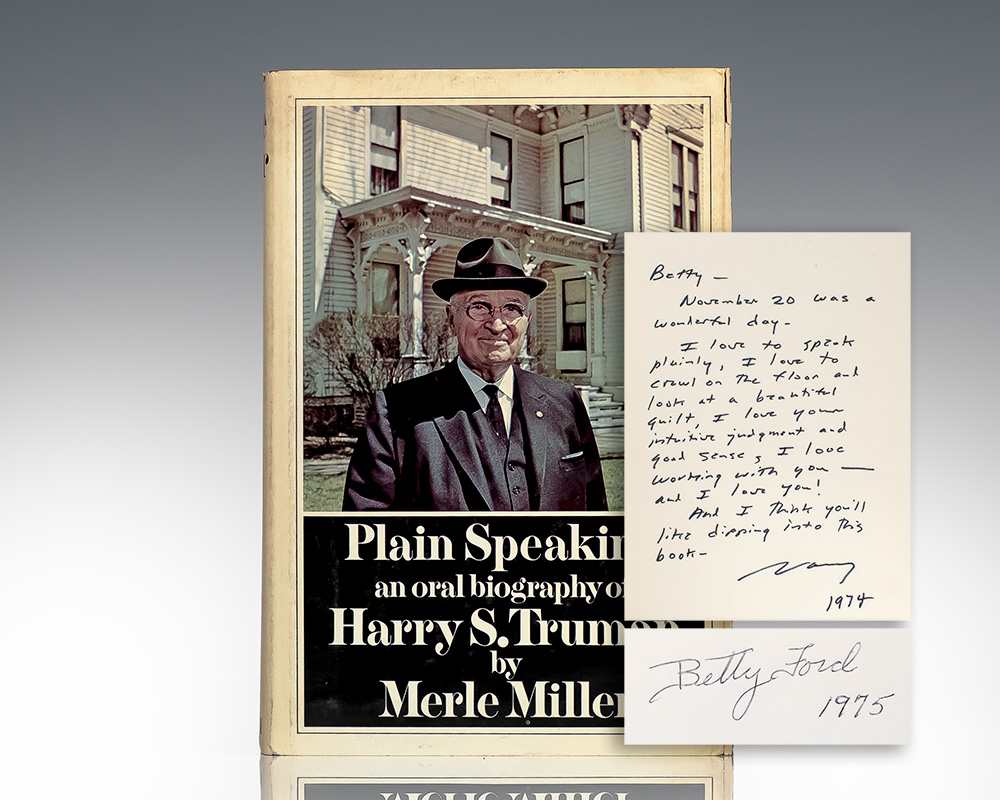 Plain Speakin
an oral biography o
Harry S. Truman
by
Merle Miller
Betty —
November 20 was a
wonderful day —
I love to speak
plainly, I love to
crawl on the floor and
look at a beautiful
quilt, I love your
intuitive judgment and
good sense, I love
working with you —
and I love you!
And I think you'll
like dipping into this
book —
Nancy
1974
Betty Ford
1975